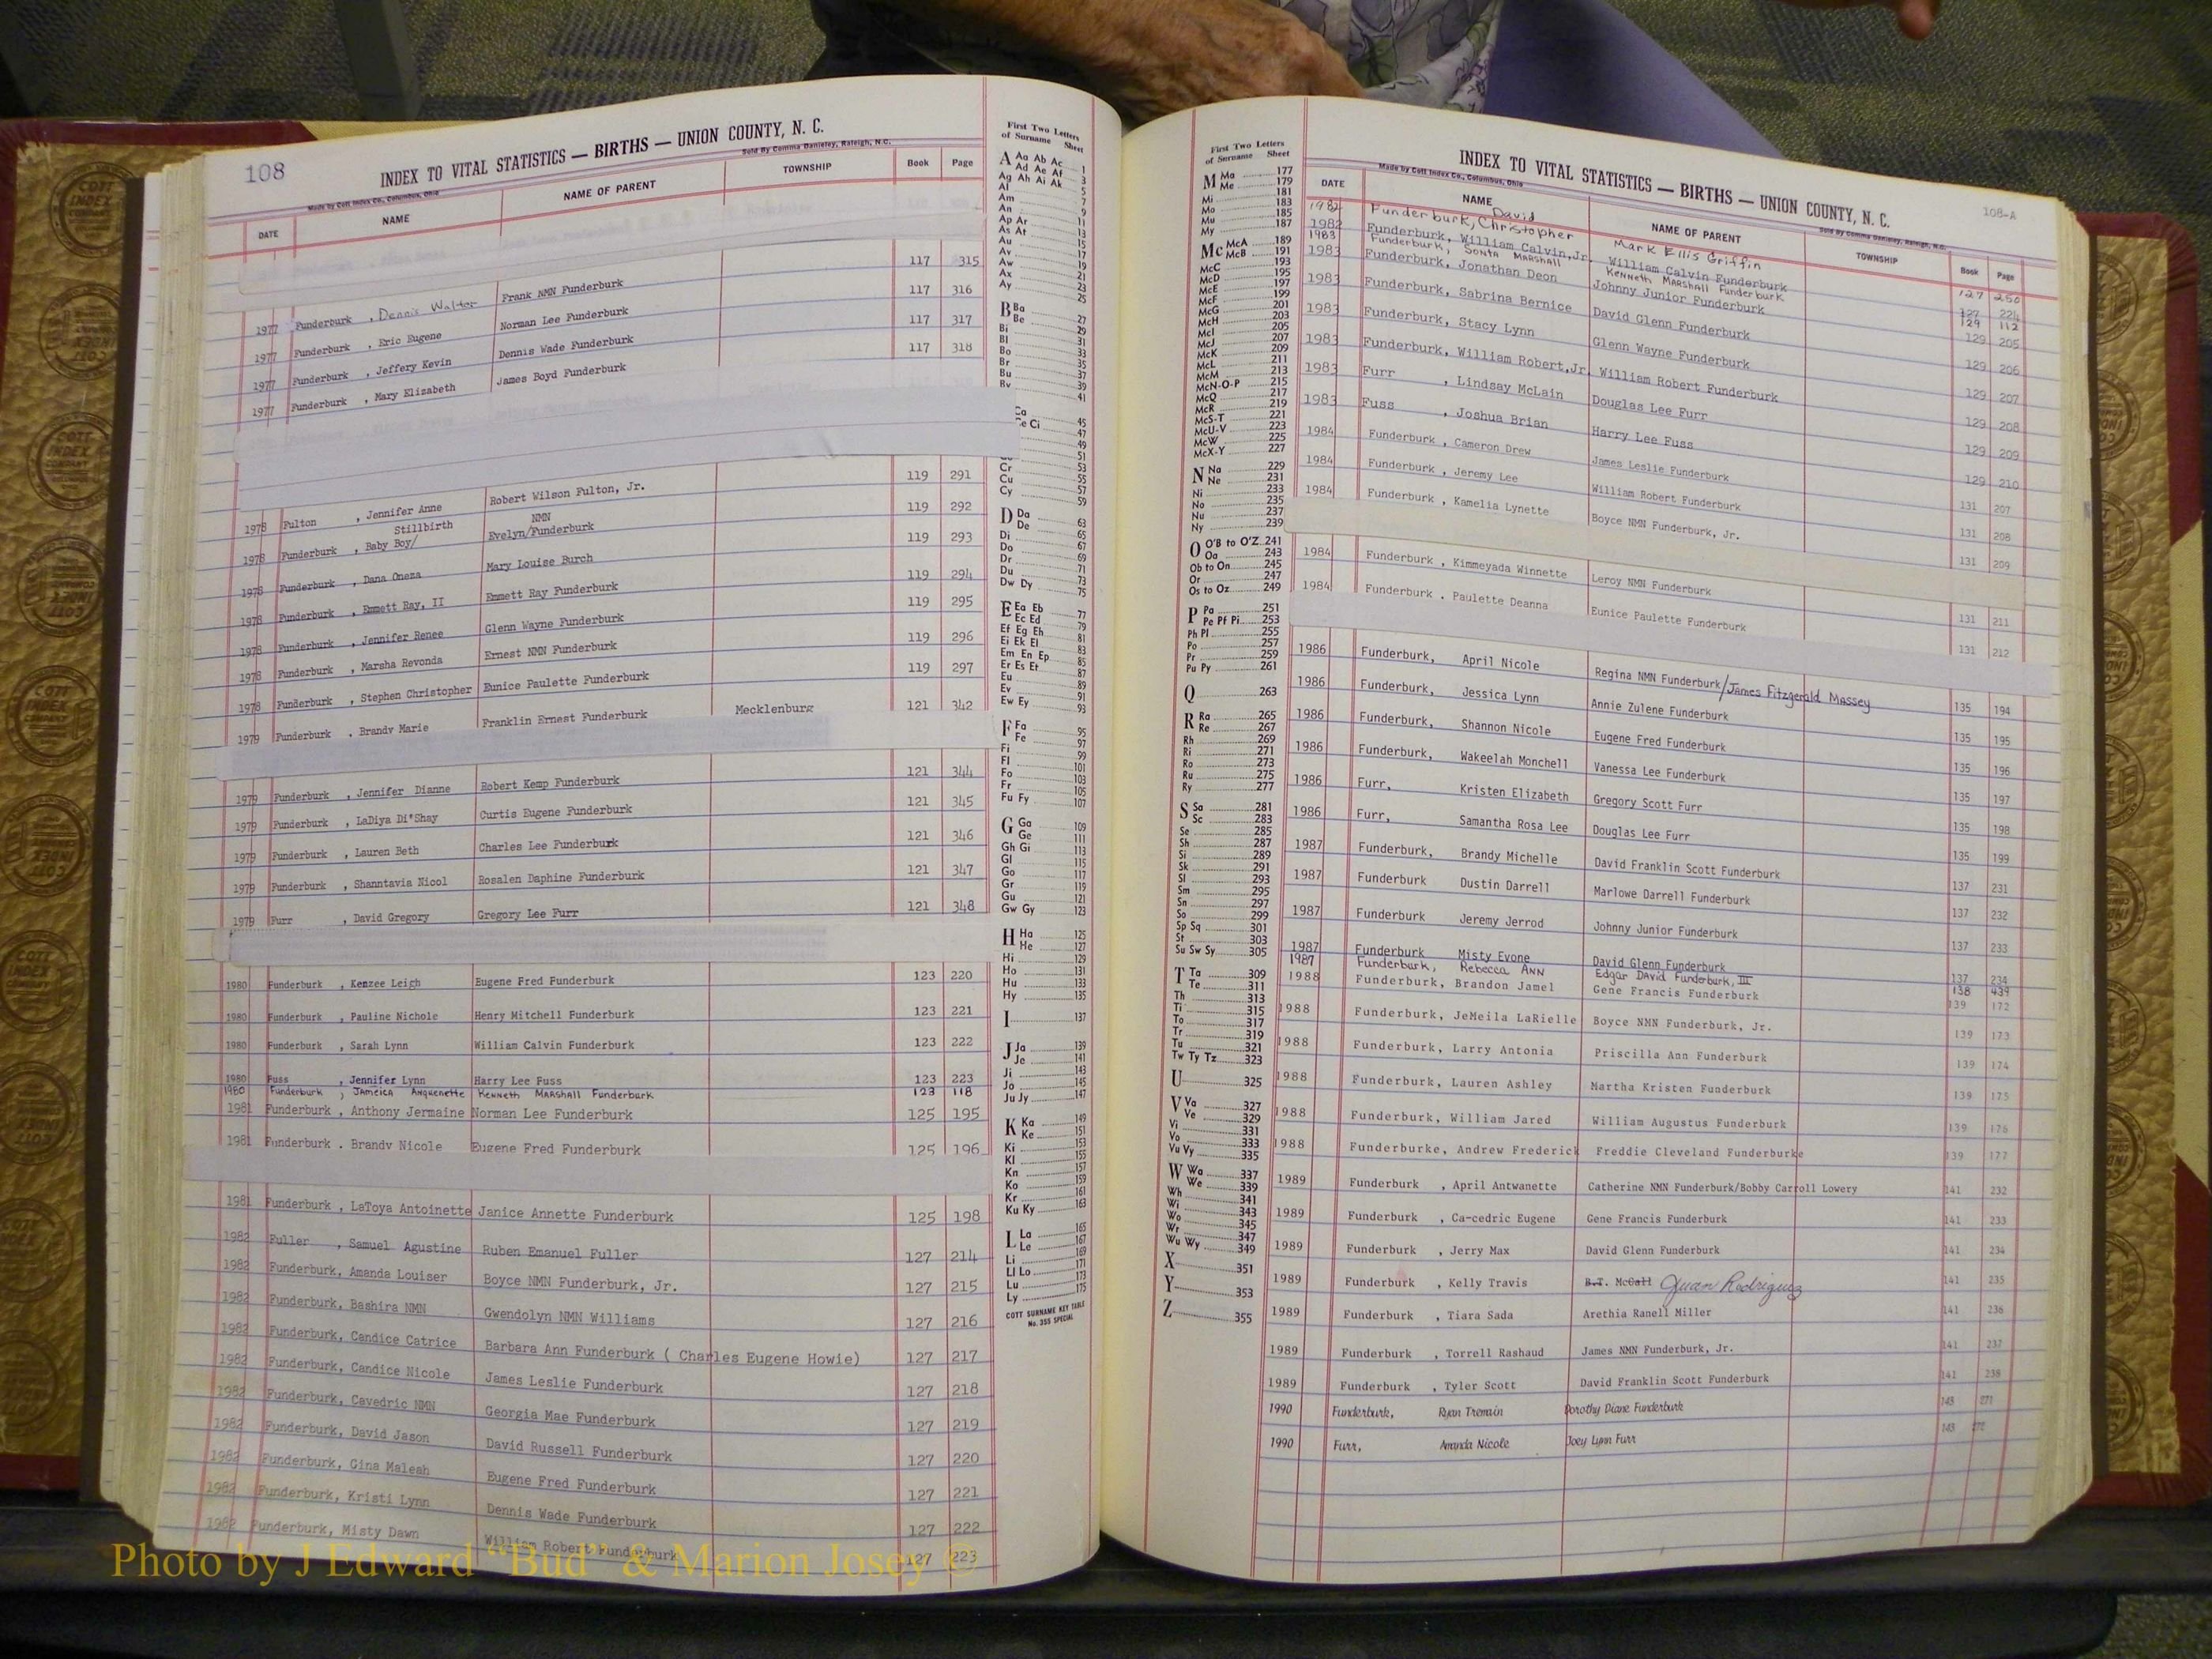 108
INDEX TO VITAL STATISTICS — BIRTHS — UNION COUNTY, N. C.
Made by Cott Index Co., Columbus, Ohio
Sold By Comma Danieley, Raleigh, N.C.
DATE NAME NAME OF PARENT TOWNSHIP Book Page
1977 Funderburk , Dennis Walter Frank NMN Funderburk 117 315
1977 Funderburk , Eric Eugene Norman Lee Funderburk 117 316
1977 Funderburk , Jeffery Kevin Dennis Wade Funderburk 117 317
1977 Funderburk , Mary Elizabeth James Boyd Funderburk 117 318
1978 Fulton , Jennifer Anne Robert Wilson Fulton, Jr. 119 291
Stillbirth NMN
1978 Funderburk , Baby Boy/ Evelyn/Funderburk 119 292
1978 Funderburk , Dana Oneza Mary Louise Burch 119 293
1978 Funderburk , Emmett Ray, II Emmett Ray Funderburk 119 294
1978 Funderburk , Jennifer Renee Glenn Wayne Funderburk 119 295
1978 Funderburk , Marsha Revonda Ernest NMN Funderburk 119 296
1978 Funderburk , Stephen Christopher Eunice Paulette Funderburk 119 297
1979 Funderburk , Brandy Marie Franklin Ernest Funderburk Mecklenburg 121 342
1979 Funderburk , Jennifer Dianne Robert Kemp Funderburk 121 344
1979 Funderburk , LaDiya Di'Shay Curtis Eugene Funderburk 121 345
1979 Funderburk , Lauren Beth Charles Lee Funderburk 121 346
1979 Funderburk , Shanntavia Nicol Rosalen Daphine Funderburk 121 347
1979 Furr , David Gregory Gregory Lee Furr 121 348
1980 Funderburk , Kenzee Leigh Eugene Fred Funderburk 123 220
1980 Funderburk , Pauline Nichole Henry Mitchell Funderburk 123 221
1980 Funderburk , Sarah Lynn William Calvin Funderburk 123 222
1980 Fuss , Jennifer Lynn Harry Lee Fuss 123 223
1980 Funderburk , Jameica Anquenette Kenneth Marshall Funderburk 123 118
1981 Funderburk , Anthony Jermaine Norman Lee Funderburk 125 195
1981 Funderburk . Brandy Nicole Eugene Fred Funderburk 125 196
1981 Funderburk , LaToya Antoinette Janice Annette Funderburk 125 198
1982 Fuller , Samuel Agustine Ruben Emanuel Fuller 127 214
1982 Funderburk, Amanda Louiser Boyce NMN Funderburk, Jr. 127 215
1982 Funderburk, Bashira NMN Gwendolyn NMN Williams 127 216
1982 Funderburk, Candice Catrice Barbara Ann Funderburk ( Charles Eugene Howie) 127 217
1982 Funderburk, Candice Nicole James Leslie Funderburk 127 218
1982 Funderburk, Cavedric NMN Georgia Mae Funderburk 127 219
1982 Funderburk, David Jason David Russell Funderburk 127 220
1982 Funderburk, Gina Maleah Eugene Fred Funderburk 127 221
1982 Funderburk, Kristi Lynn Dennis Wade Funderburk 127 222
1982 Funderburk, Misty Dawn William Robert Funderburk 127 223
First Two Letters
of Surname Sheet
A Aa Ab Ac 1
Ad Ae Af 3
Ag Ah Ai Ak 5
Al 7
Am 9
An 11
Ap Ar 13
As At 15
Au 17
Av 19
Aw 21
Ax 23
Ay 25
B Ba 27
Be 29
Bi 31
Bl 33
Bo 35
Br 37
Bu 39
By 41
Ca 45
Ce Ci 47
49
51
Cr 53
Cu 55
Cy 57
59
D Da 63
De 65
Di 67
Do 69
Dr 71
Du 73
Dw Dy 75
E Ea Eb 77
Ec Ed 79
Ef Eg Eh 81
Ei Ek El 83
Em En Ep 85
Er Es Et 87
Eu 89
Ev 91
Ew Ey 93
F Fa 95
Fe 97
Fi 99
Fl 101
Fo 103
Fr 105
Fu Fy 107
G Ga 109
Ge 111
Gh Gi 113
Gl 115
Go 117
Gr 119
Gu 121
Gw Gy 123
H Ha 125
He 127
Hi 129
Ho 131
Hu 133
Hy 135
I 137
J Ja 139
Je 141
Ji 143
Jo 145
Ju Jy 147
K Ka 149
Ke 151
Ki 153
Kl 155
Kn 157
Ko 159
Kr 161
Ku Ky 163
L La 165
Le 167
Li 169
Ll Lo 171
Lu 173
Ly 175
COTT SURNAME KEY TABLE
No. 355 SPECIAL
First Two Letters
of Surname Sheet
M Ma 177
Me 179
Mi 181
Mo 183
Mu 185
My 187
Mc McA 189
McB 191
McC 193
McD 195
McE 197
McF 199
McG 201
McH 203
McI 205
McJ 207
McK 209
McL 211
McM 213
McN-O-P 215
McQ 217
McR 219
McS-T 221
McU-V 223
McW 225
McX-Y 227
N Na 229
Ne 231
Ni 233
No 235
Nu 237
Ny 239
O O'B to O'Z 241
Oa 243
Ob to On 245
Or 247
Os to Oz 249
P Pa 251
Pe Pf Pi 253
Ph Pl 255
Po 257
Pr 259
Pu Py 261
Q 263
R Ra 265
Re 267
Rh 269
Ri 271
Ro 273
Ru 275
Ry 277
S Sa 281
Sc 283
Se 285
Sh 287
Si 289
Sk 291
Sl 293
Sm 295
Sn 297
So 299
Sp Sq 301
St 303
Su Sw Sy 305
T Ta 309
Te 311
Th 313
Ti 315
To 317
Tr 319
Tu 321
Tw Ty Tz 323
U 325
V Va 327
Ve 329
Vi 331
Vo 333
Vu Vy 335
W Wa 337
We 339
Wh 341
Wi 343
Wo 345
Wr 347
Wu Wy 349
X 351
Y 353
Z 355
108-A
INDEX TO VITAL STATISTICS — BIRTHS — UNION COUNTY, N. C.
Made by Cott Index Co., Columbus, Ohio
Sold By Comma Danieley, Raleigh, N.C.
DATE NAME NAME OF PARENT TOWNSHIP Book Page
David
1982 Funderburk, Christopher Mark Ellis Griffin 127 250
1982 Funderburk, William Calvin, Jr. William Calvin Funderburk 127 224
1983 Funderburk, Sonta Marshall Kenneth Marshall Funderburk 129 112
1983 Funderburk, Jonathan Deon Johnny Junior Funderburk 129 205
1983 Funderburk, Sabrina Bernice David Glenn Funderburk 129 206
1983 Funderburk, Stacy Lynn Glenn Wayne Funderburk 129 207
1983 Funderburk, William Robert, Jr. William Robert Funderburk 129 208
1983 Furr , Lindsay McLain Douglas Lee Furr 129 209
1983 Fuss , Joshua Brian Harry Lee Fuss 129 210
1984 Funderburk , Cameron Drew James Leslie Funderburk 131 207
1984 Funderburk , Jeremy Lee William Robert Funderburk 131 208
1984 Funderburk , Kamelia Lynette Boyce NMN Funderburk, Jr. 131 209
1984 Funderburk , Kimmeyada Winnette Leroy NMN Funderburk 131 211
1984 Funderburk . Paulette Deanna Eunice Paulette Funderburk 131 212
1986 Funderburk, April Nicole Regina NMN Funderburk/James Fitzgerald Massey 135 194
1986 Funderburk, Jessica Lynn Annie Zulene Funderburk 135 195
1986 Funderburk, Shannon Nicole Eugene Fred Funderburk 135 196
1986 Funderburk, Wakeelah Monchell Vanessa Lee Funderburk 135 197
1986 Furr, Kristen Elizabeth Gregory Scott Furr 135 198
1986 Furr, Samantha Rosa Lee Douglas Lee Furr 135 199
1987 Funderburk, Brandy Michelle David Franklin Scott Funderburk 137 231
1987 Funderburk Dustin Darrell Marlowe Darrell Funderburk 137 232
1987 Funderburk Jeremy Jerrod Johnny Junior Funderburk 137 233
1987 Funderburk Misty Evone David Glenn Funderburk 137 234
1987 Funderburk, Rebecca Ann Edgar David Funderburk, III 138 439
1988 Funderburk, Brandon Jamel Gene Francis Funderburk 139 172
1988 Funderburk, JeMeila LaRielle Boyce NMN Funderburk, Jr. 139 173
1988 Funderburk, Larry Antonia Priscilla Ann Funderburk 139 174
1988 Funderburk, Lauren Ashley Martha Kristen Funderburk 139 175
1988 Funderburk, William Jared William Augustus Funderburk 139 176
1988 Funderburke, Andrew Frederick Freddie Cleveland Funderburke 139 177
1989 Funderburk , April Antwanette Catherine NMN Funderburk/Bobby Carroll Lowery 141 232
1989 Funderburk , Ca-cedric Eugene Gene Francis Funderburk 141 233
1989 Funderburk , Jerry Max David Glenn Funderburk 141 234
1989 Funderburk , Kelly Travis B.T. McCall Juan Rodriguez 141 235
1989 Funderburk , Tiara Sada Arethia Ranell Miller 141 236
1989 Funderburk , Torrell Rashaud James NMN Funderburk, Jr. 141 237
1989 Funderburk , Tyler Scott David Franklin Scott Funderburk 141 238
1990 Funderburk, Ryan Tremain Dorothy Diane Funderburk 143 271
1990 Furr, Amanda Nicole Joey Lynn Furr 143 272
Photo by J Edward “Bud” & Marion Josey ©